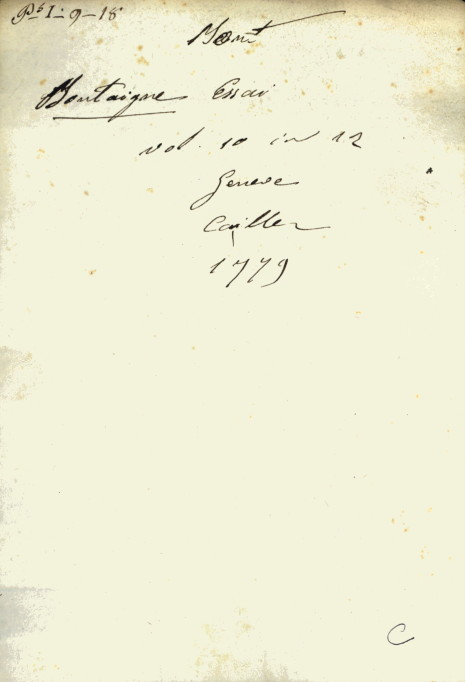 Ps I-9-18
Mont
Montaigne Essai
vol. 10 in 12
Geneve
Cailler
1779
C